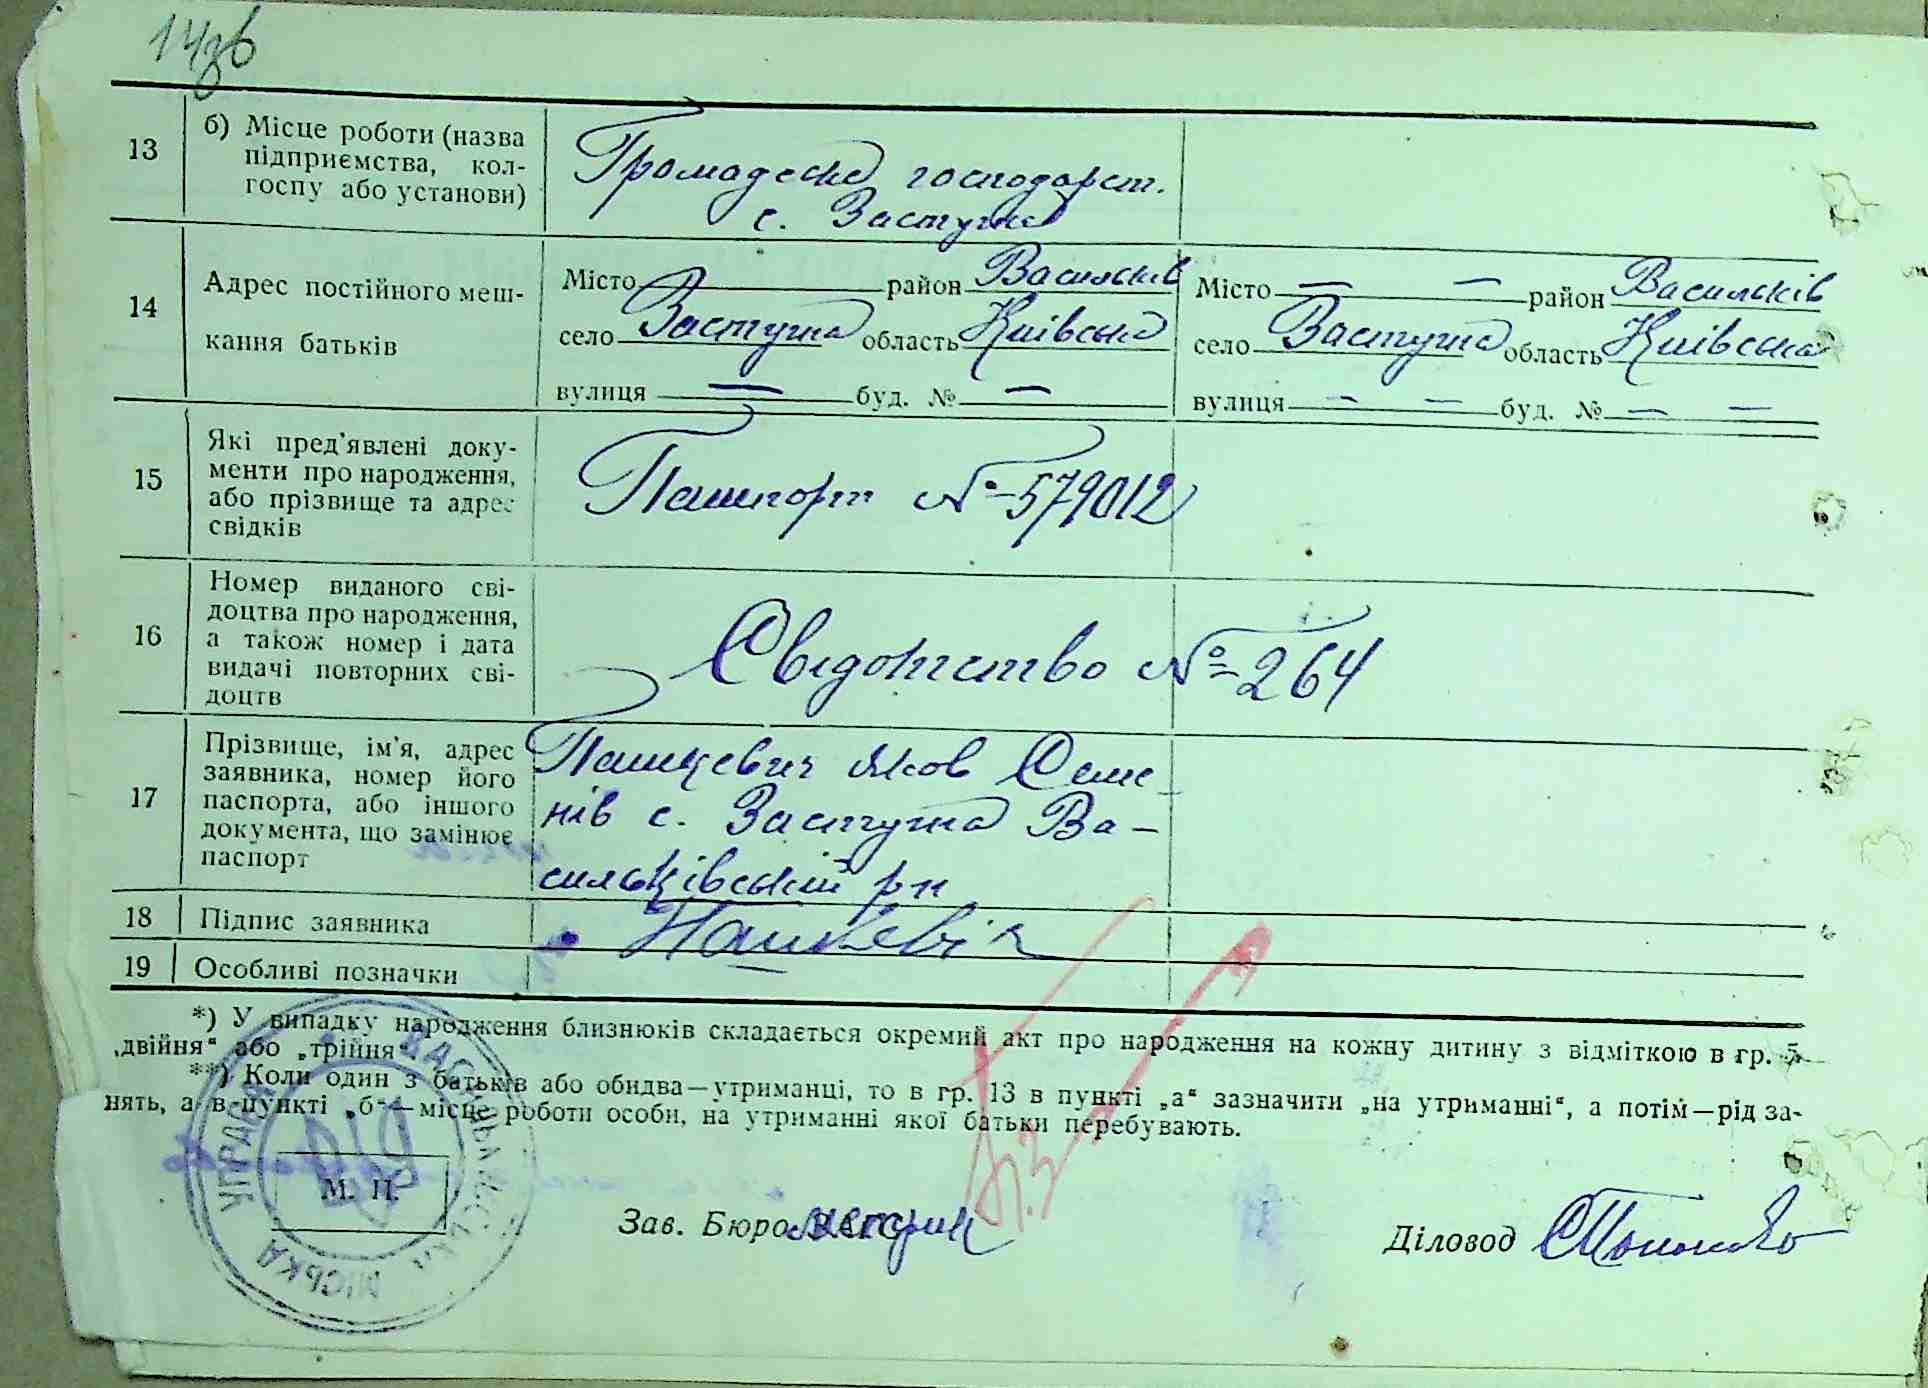 14зв
13
б) Місце роботи (назва
підприємства, кол-
госпу або установи)
Громадське господарст.
с. Застугна
14
Адрес постійного меш-
кання батьків
Місто район Васильків
село Застугна область Київська
вулиця — буд. № —
Місто — — район Васильків
село Застугна область Київська
вулиця — — буд. № — —
15
Які пред'явлені доку-
менти про народження,
або прізвище та адрес
свідків
Пашпорт № 579012
16
Номер виданого сві-
доцтва про народження,
а також номер і дата
видачі повторних сві-
доцтв
Свідотство № 264
17
Прізвище, ім'я, адрес
заявника, номер його
паспорта, або іншого
документа, що замінює
паспорт
Пашкевич Яков Семе-
нів с. Застугна Ва-
сильківський рн
18 Підпис заявника
Пашкевич
19 Особливі позначки
*) У випадку народження близнюків складається окремий акт про народження на кожну дитину з відміткою в гр. 5
„двійня“ або „трійня“
**) Коли один з батьків або обидва—утриманці, то в гр. 13 в пункті „а“ зазначити „на утриманні“, а потім—рід за-
нять, а в пункті „б“—місце роботи особи, на утриманні якої батьки перебувають.
ВАСИЛЬКІВСЬКА МІСЬКА УПРАВА
М. П.
Зав. Бюро ЗАГС
Діловод